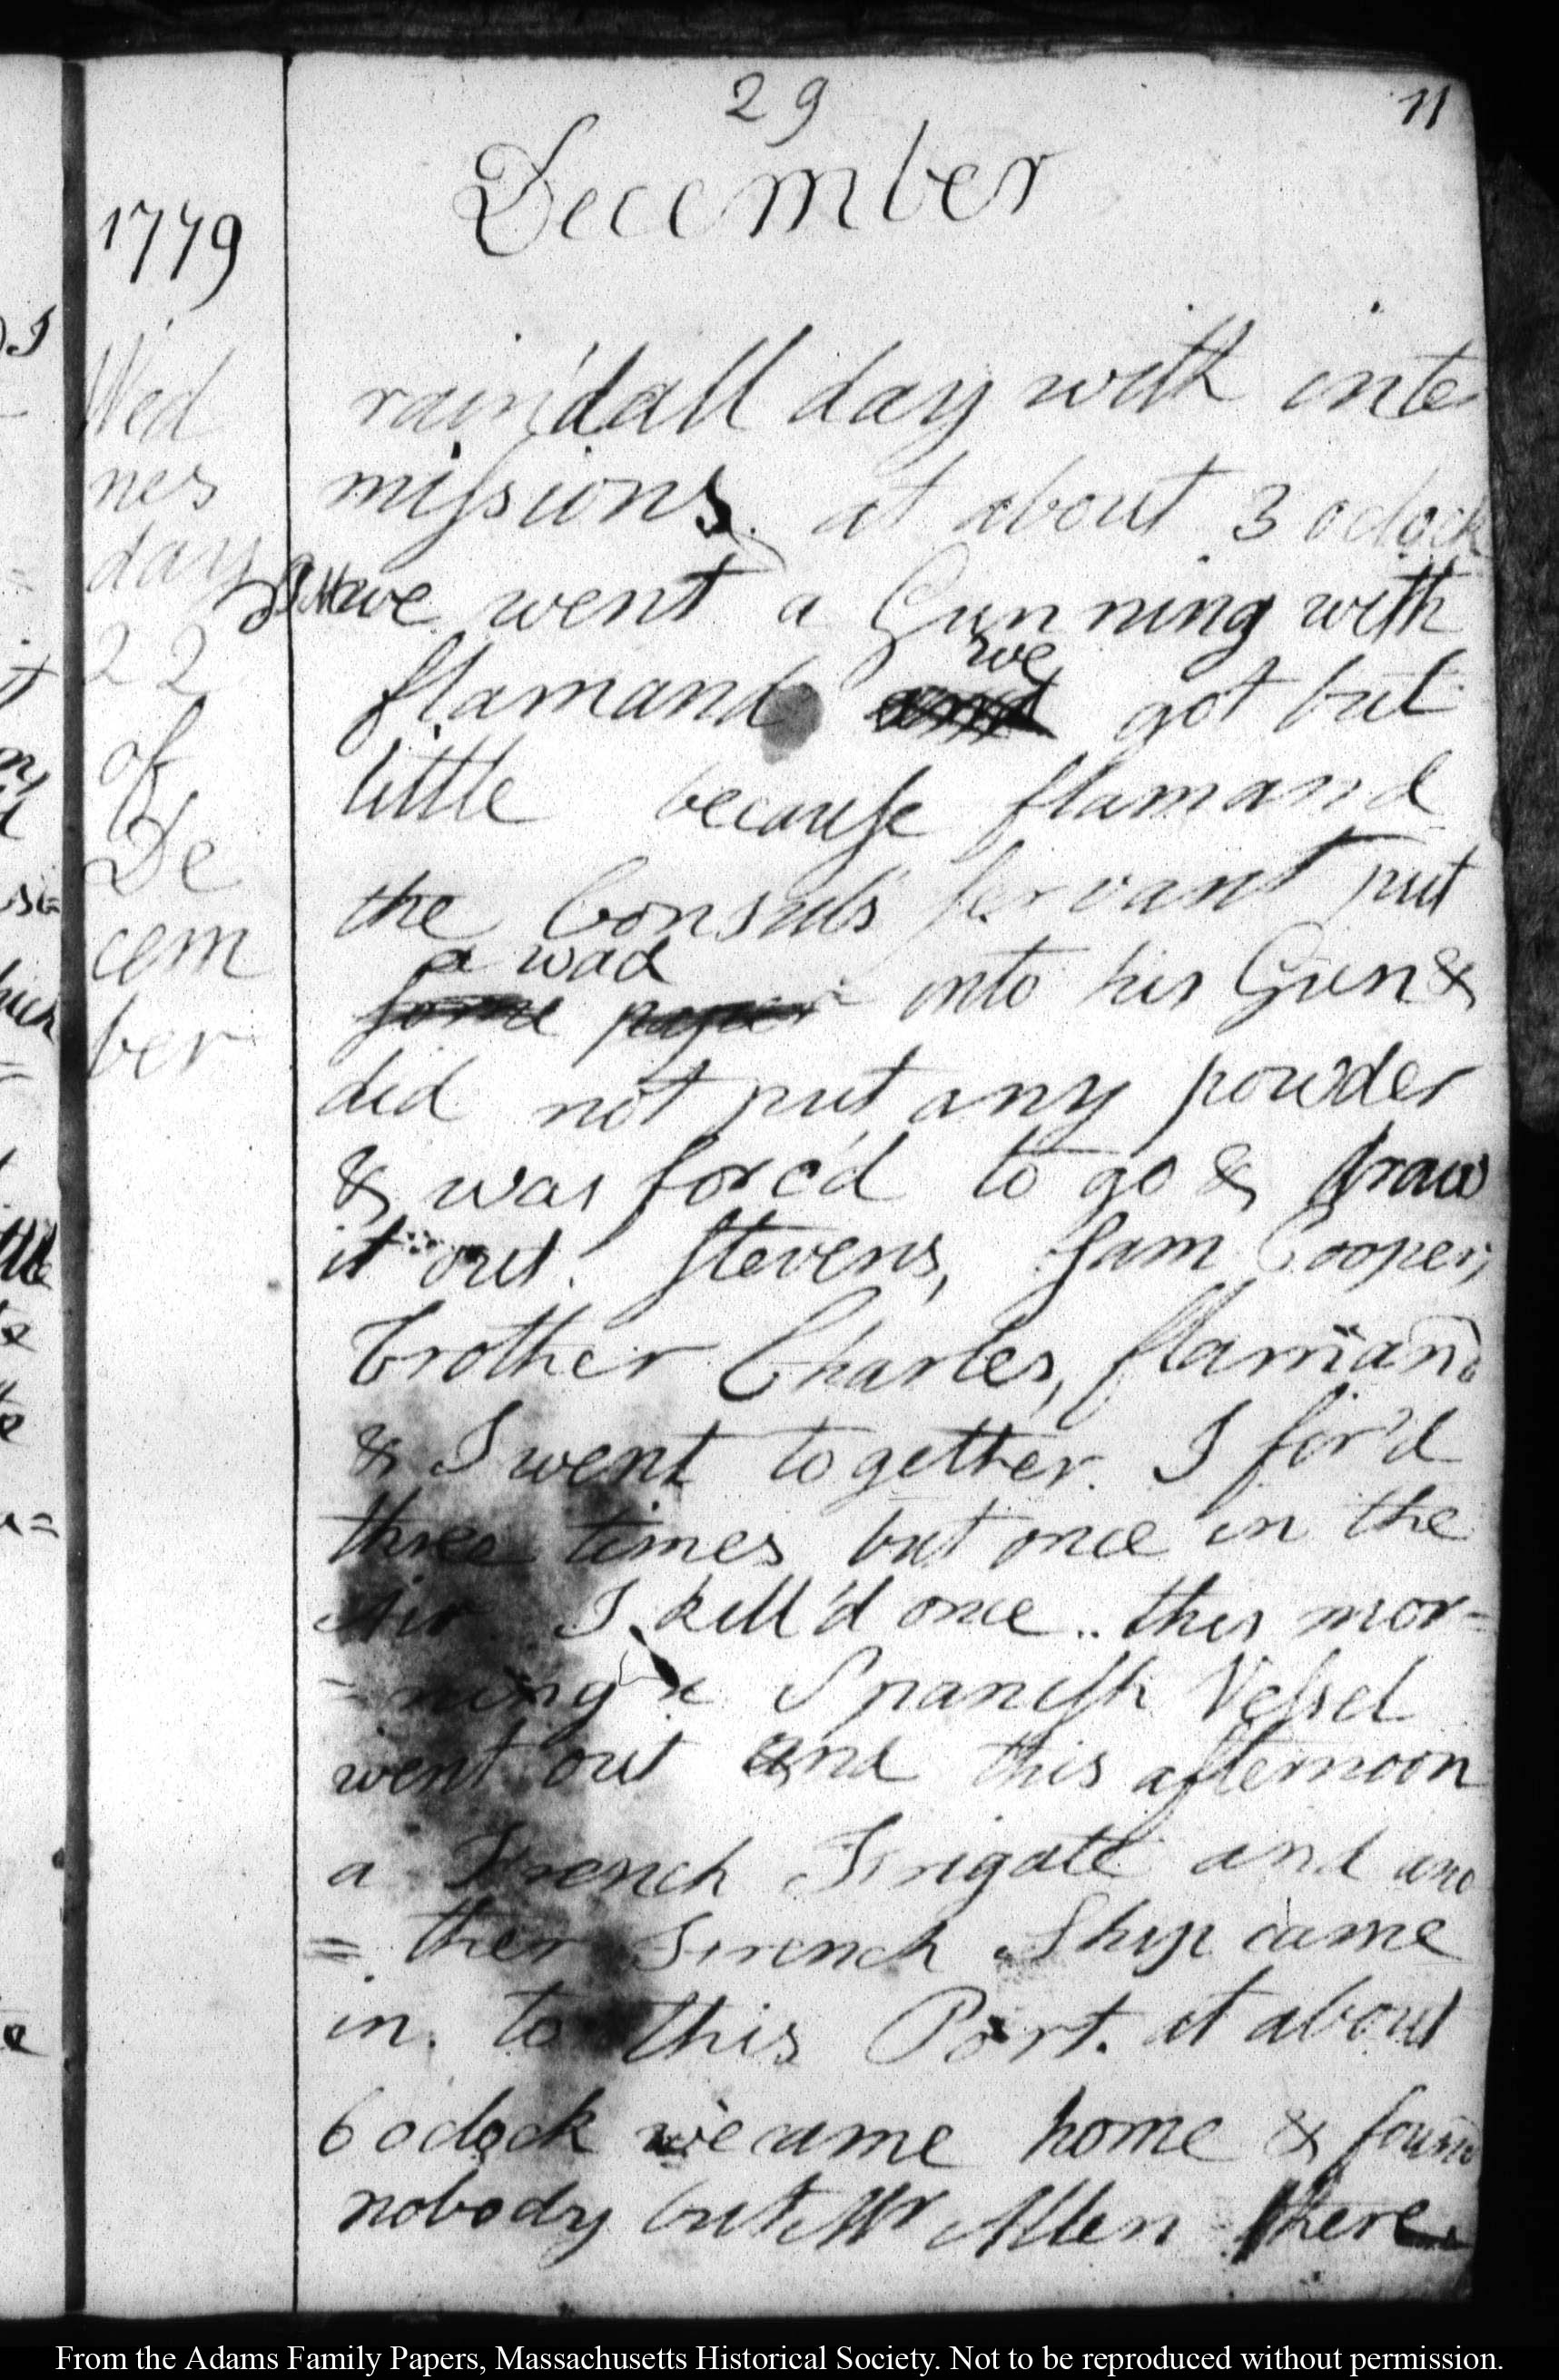 29
11
December
1779
Wed
nes
day
22
of
De
cem
ber
rain'd all day with inte
missions. at about 3 oclock
we went a Gunning with
we
flamand and got but
little because flamand
the Consuls servant put
a wad
some paper into his Gun &
did not put any powder
& was forc'd to go & draw
it out. Stevens, Sam Cooper,
brother Charles, flamand
& I went together. I fir'd
three times but once in the
Air I kill'd once.. this mor-
-ning a Spanish Vessel
went out and this afternoon
a French Frigate and ano
= ther French Ship came
in. to this Port. at about
6 oclock we came home & found
nobody but Mr Allen there
From the Adams Family Papers, Massachusetts Historical Society. Not to be reproduced without permission.